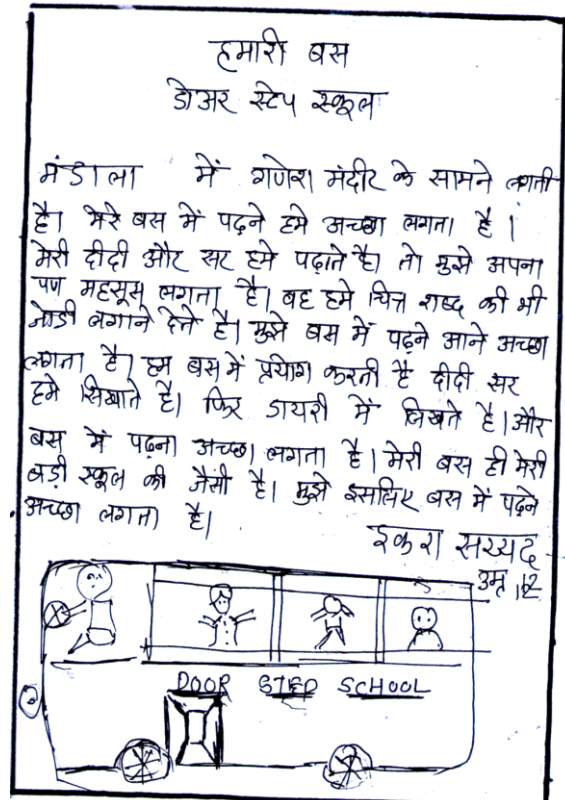 हमारी बस
डोअर स्टेप स्कूल
मंडाला में गणेश मंदीर के सामने लगती
है। मेरे बस में पढ़ने हमे अच्छा लगता है।
मेरी दीदी और सर हमे पढ़ाते है। तो मुझे अपना
पण महसूस लगता है। वह हमे चित्र शब्द की भी
जोडी लगाने देते है। मुझे बस में पढ़ने आने अच्छा
लगता है। हम बस में प्रयोग करती है दीदी सर
हमे सिखाते है। फिर डायरी में लिखते है। और
बस में पढ़ना अच्छा लगता है। मेरी बस ही मेरी
बडी स्कूल की जैसी है। मुझे इसलिए बस में पढ़ने
अच्छा लगता है।
इकरा सय्यद
उम्र 12
DOOR STEP SCHOOL